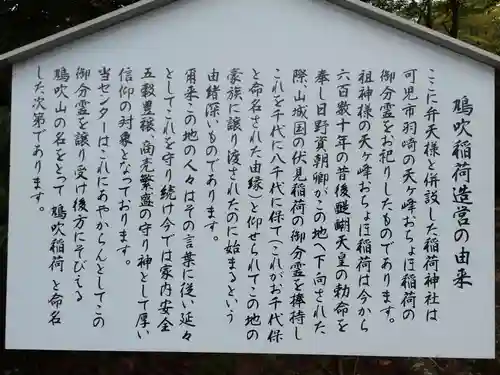 鳩吹稲荷造営の由来
ここに弁天様と併設した稲荷神社は
可児市羽崎の天ヶ峰おちょぼ稲荷の
御分霊をお祀りしたものであります。
祖神様の天ヶ峰おちょぼ稲荷は今から
六百数十年の昔後醍醐天皇の勅命を
奉し日野資朝卿がこの地へ下向された
際山城国の伏見稲荷の御分霊を捧持し
これを千代に八千代に保て(これがお千代保
と命名された由縁)と仰せられてこの地の
豪族に譲り渡されたのに始まるという
由緒深いものであります。
爾来この地の人々はその言葉に従い延々
としてこれを守り続け今では家内安全
五穀豊穣、商売繁盛の守り神として厚い
信仰の対象となっております。
当センターはこれにあやからんとしてこの
御分霊を譲り受け後方にそびえる
鳩吹山の名をとって 鳩吹稲荷 と命名
した次第であります。